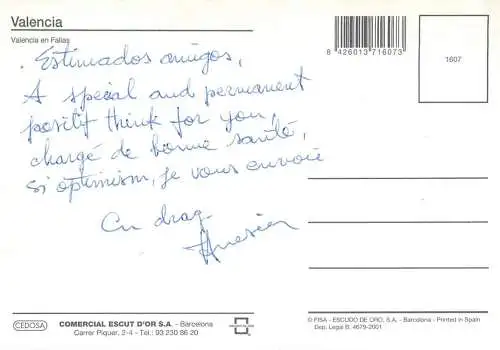 Valencia
Valencia en Fallas
8 426013 716073
1607
. Estimados amigos,
A special and permanent
positif think for you,
chargé de bonne santé,
si optimism, je vous envoie
Cu drag
CEDOSA
COMERCIAL ESCUT D'OR S.A. - Barcelona
Carrer Piquer, 2-4 - Tel.: 93 230 86 20
© FISA - ESCUDO DE ORO, S.A. - Barcelona - Printed in Spain
Dep. Legal B. 4679-2001